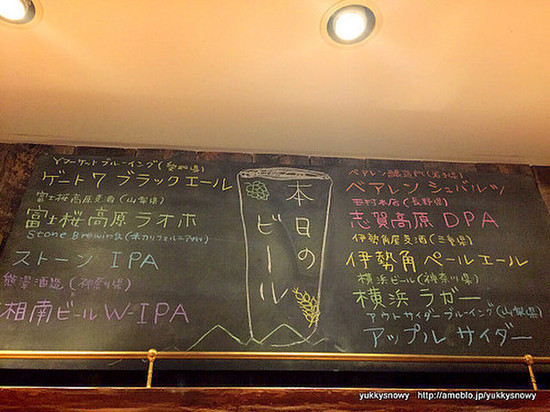 Yマーケットブルーイング(愛知県)
ゲート7 ブラックエール
富士桜高原麦酒(山梨県)
富士桜高原 ラオホ
Stone Brewing(米カリフォルニア州)
ストーン IPA
熊澤酒造(神奈川県)
湘南ビール W-IPA
本日の
ビール
ベアレン醸造所(岩手県)
ベアレン シュバルツ
玉村本店(長野県)
志賀高原 DPA
伊勢角屋麦酒(三重県)
伊勢角 ペールエール
横浜ビール(神奈川県)
横浜 ラガー
アウトサイダーブルーイング(山梨県)
アップル サイダー
yukkysnowy http://ameblo.jp/yukkysnowy